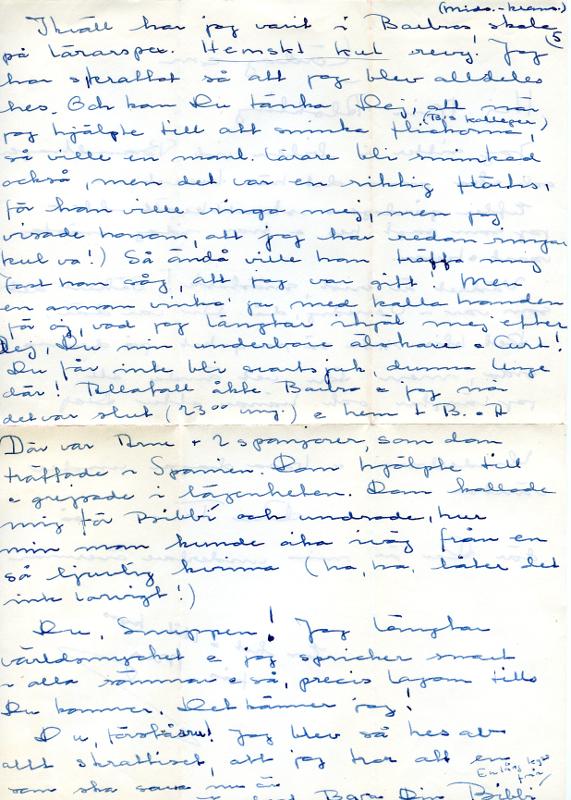 (mids.-krans.)
Ikväll har jag varit i Barbros skola
på lärarspex. Hemskt kul revy. Jag
har skrattat så att jag blev alldeles
hes. Och kan Du tänka Dej, att när
(B:s kollegor)
jag hjälpte till att sminka flickorna,
så ville en manl. lärare bli sminkad
också, men det var en riktig
för han ville ringa mej, men jag
visade honom, att jag har redan ringar
kul va!) Så ändå ville han träffa mig
fast han såg, att jag var gift! Men
en annan vinka' ju, med kalla handen
få oj, vad jag längtar ihjäl mej efter
Dej, Du min underbare älskare o Curt!
Du får inte bli svartsjuk, dumma
där! I allafall åkte Barbro o jag när
det var slut (23⁰⁰ ung.) o hem t B. o A
Där var Arne + 2 spanjorer, som dom
träffade i Spanien. Dom hjälpte till
o grejade i lägenheten. Dom kallade
mig för Bibbi och undrade, hur
min man kunde åka iväg från en
så ljuvlig kvinna (ha, ha, låter det
inte torrigt!)
Du, Snuppen! Jag längtar
världsmycket o jag spricker snart
i alla sömmar o så, precis lagom tills
Du kommer. Det känner jag!
Du, förståru! Jag blev så hes av
allt skrattiset, att jag har att en
En lång kyss
från
som ska vara nu är
Bara Din Bibbi